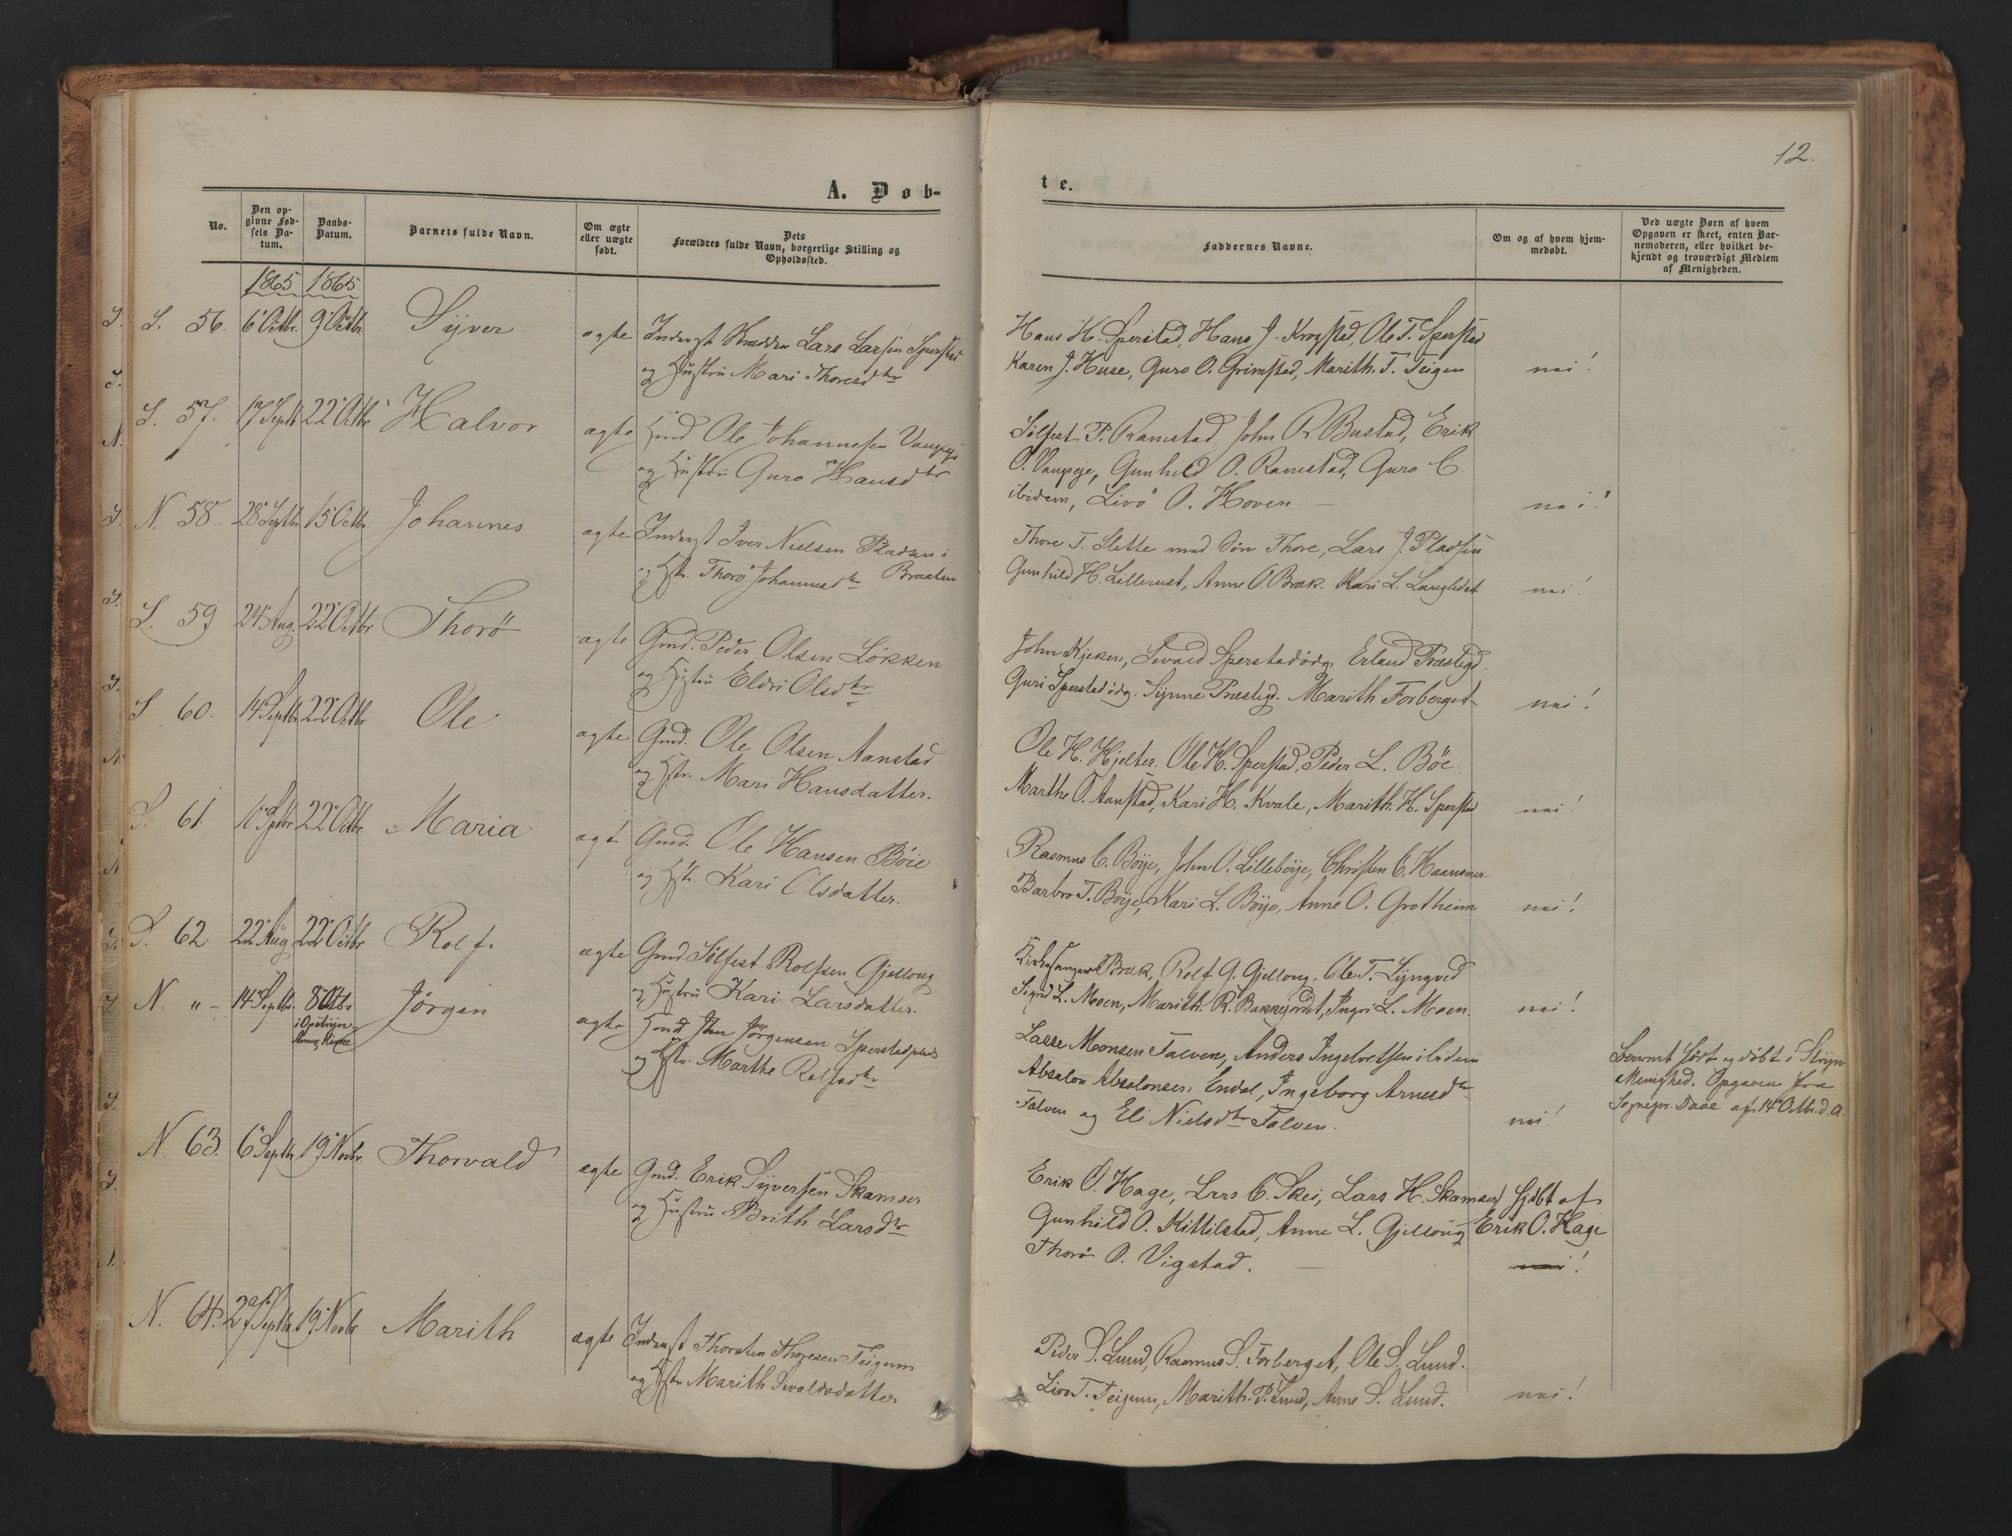 12.
A. Døb-
te.
No.
Den op-
givne Fød-
sels Da-
tum.
Daabs-
Datum.
Barnets fulde Navn.
Om ægte
eller uægte
født.
Dets
Forældres fulde Navn, borgerlige Stilling og
Opholdssted.
Faddernes Navne.
Om og af hvem hjem-
medøbt.
Ved uægte Børn af hvem
Opgaven er skeet, enten Bar-
nemoderen, eller hvilket be-
kjendt og troværdigt Medlem
af Menigheden.
1865 1865
S. 56. 6 Octbr. 9 Octbr Syver ægte Inderst Lars Larsen Sperstad
og Hustru Mari Thoresdtr
Hans H. Sperstad, Hans J. Krogstad, Ole T. Sperstad
Karen J. Huse, Guro O. Grimstad, Marith T. Teigen nei!
S. 57. 17 Septb 22 Octbr Halvor ægte Gmd Ole Johannesen Vangeje
og Hustru Guro Hansdtr
Sølfest P. Ramstad, John R Bustad, Erik
O. Vangeje, Gunhild O. Ramstad, Guro C.
ibidem, Livø O. Hoven nei!
N. 58. 28 Septbr 15 Octbr Johannes ægte Inderst Iver Nielsen Pladsen i
og Hstr. Thorø Johannesdtr Braaten
Thore T. Slette med Søn Thore, Lars J. Pladsen
Gunhild H. Lillerust, Anne O. Bræk. Kari L. Langlidet nei!
S. 59 24 Aug. 22 Octbr Thorø ægte Gmd. Peder Olsen Løkken
og Hustru Eldri Olsdtr
John Kjeken, Sivald Sperstadødg. Erland Præstegd.
Guri Sperstadødg. Synne Præstegd. Marith Forberget nei!
S 60. 14 Septbr 22 Octbr Ole ægte Gmd. Ole Olsen Aanstad
og Hstr. Mari Hansdatter.
Ole H. Hjelter. Ole H. Sperstad, Peder L. Bøe.
Marthe O. Aanstad, Kari H. Kvale, Marith H. Sperstad nei!
S. 61. 10 Sptbr 22 Octbr Maria ægt Gmd. Ole Hansen Bøie
og Hstr. Kari Olsdatter.
Rasmus C. Bøije, John O. Lillebøije, Christen C. Haansnar
Barbro T. Bøije, Kari L. Bøije, Anne O. Grotheim nei!
S. 62 22 Aug 22 Octbr Rolf. ægte Gmd. Sølfest Rolfsen Gjellong
og Hustru Kari Larsdatter.
Kirkesanger Bræk, Rolf G. Gjellong, Ole T. Lyngved
Sigrid L. Moen, Marith R. Bakkegrdet, Ingri L. Moen. nei!
N. " - 14 Septbr. 8 Octbr Jørgen ægte Gmd Jørgensen Sperstadplads
og Hstr. Marthe Rolfsdtr
Lasse Monsen Talven, Anders Ingelvetsen ibidem
Absalon Absalonsen Endal, Ingeborg Arnesdtr
Talven og Eli Nielsdtr Talven. nei!
født og døbt i Stryn
Menighed. Opgaven fra
Sognepr. Daae af 14 Octb. d. A.
N. 63. 6 Septbr 19 Novbr. Thorvald ægte Gmd. Erik Syversen Skamser
og Hustru Brith Larsdtr
Erik O. Hage, Lars C. Skei, Lars H. Skamser hjdbt af
Gunhild O. Kittilstad, Anne L. Gjellong Erik O. Hage
Thorø O. Vigstad. nei!
N. 64. 27 Septbr 19 Novbr Marith ægte Inderst Thorsten Thoresen Teigum
og Hstr. Marith Sivaldsdatter
Peder S. Lund, Rasmus S. Forberget, Ole S. Lund.
Livø T. Teigum, Marith P. Lund, Anne S. Lund. nei!